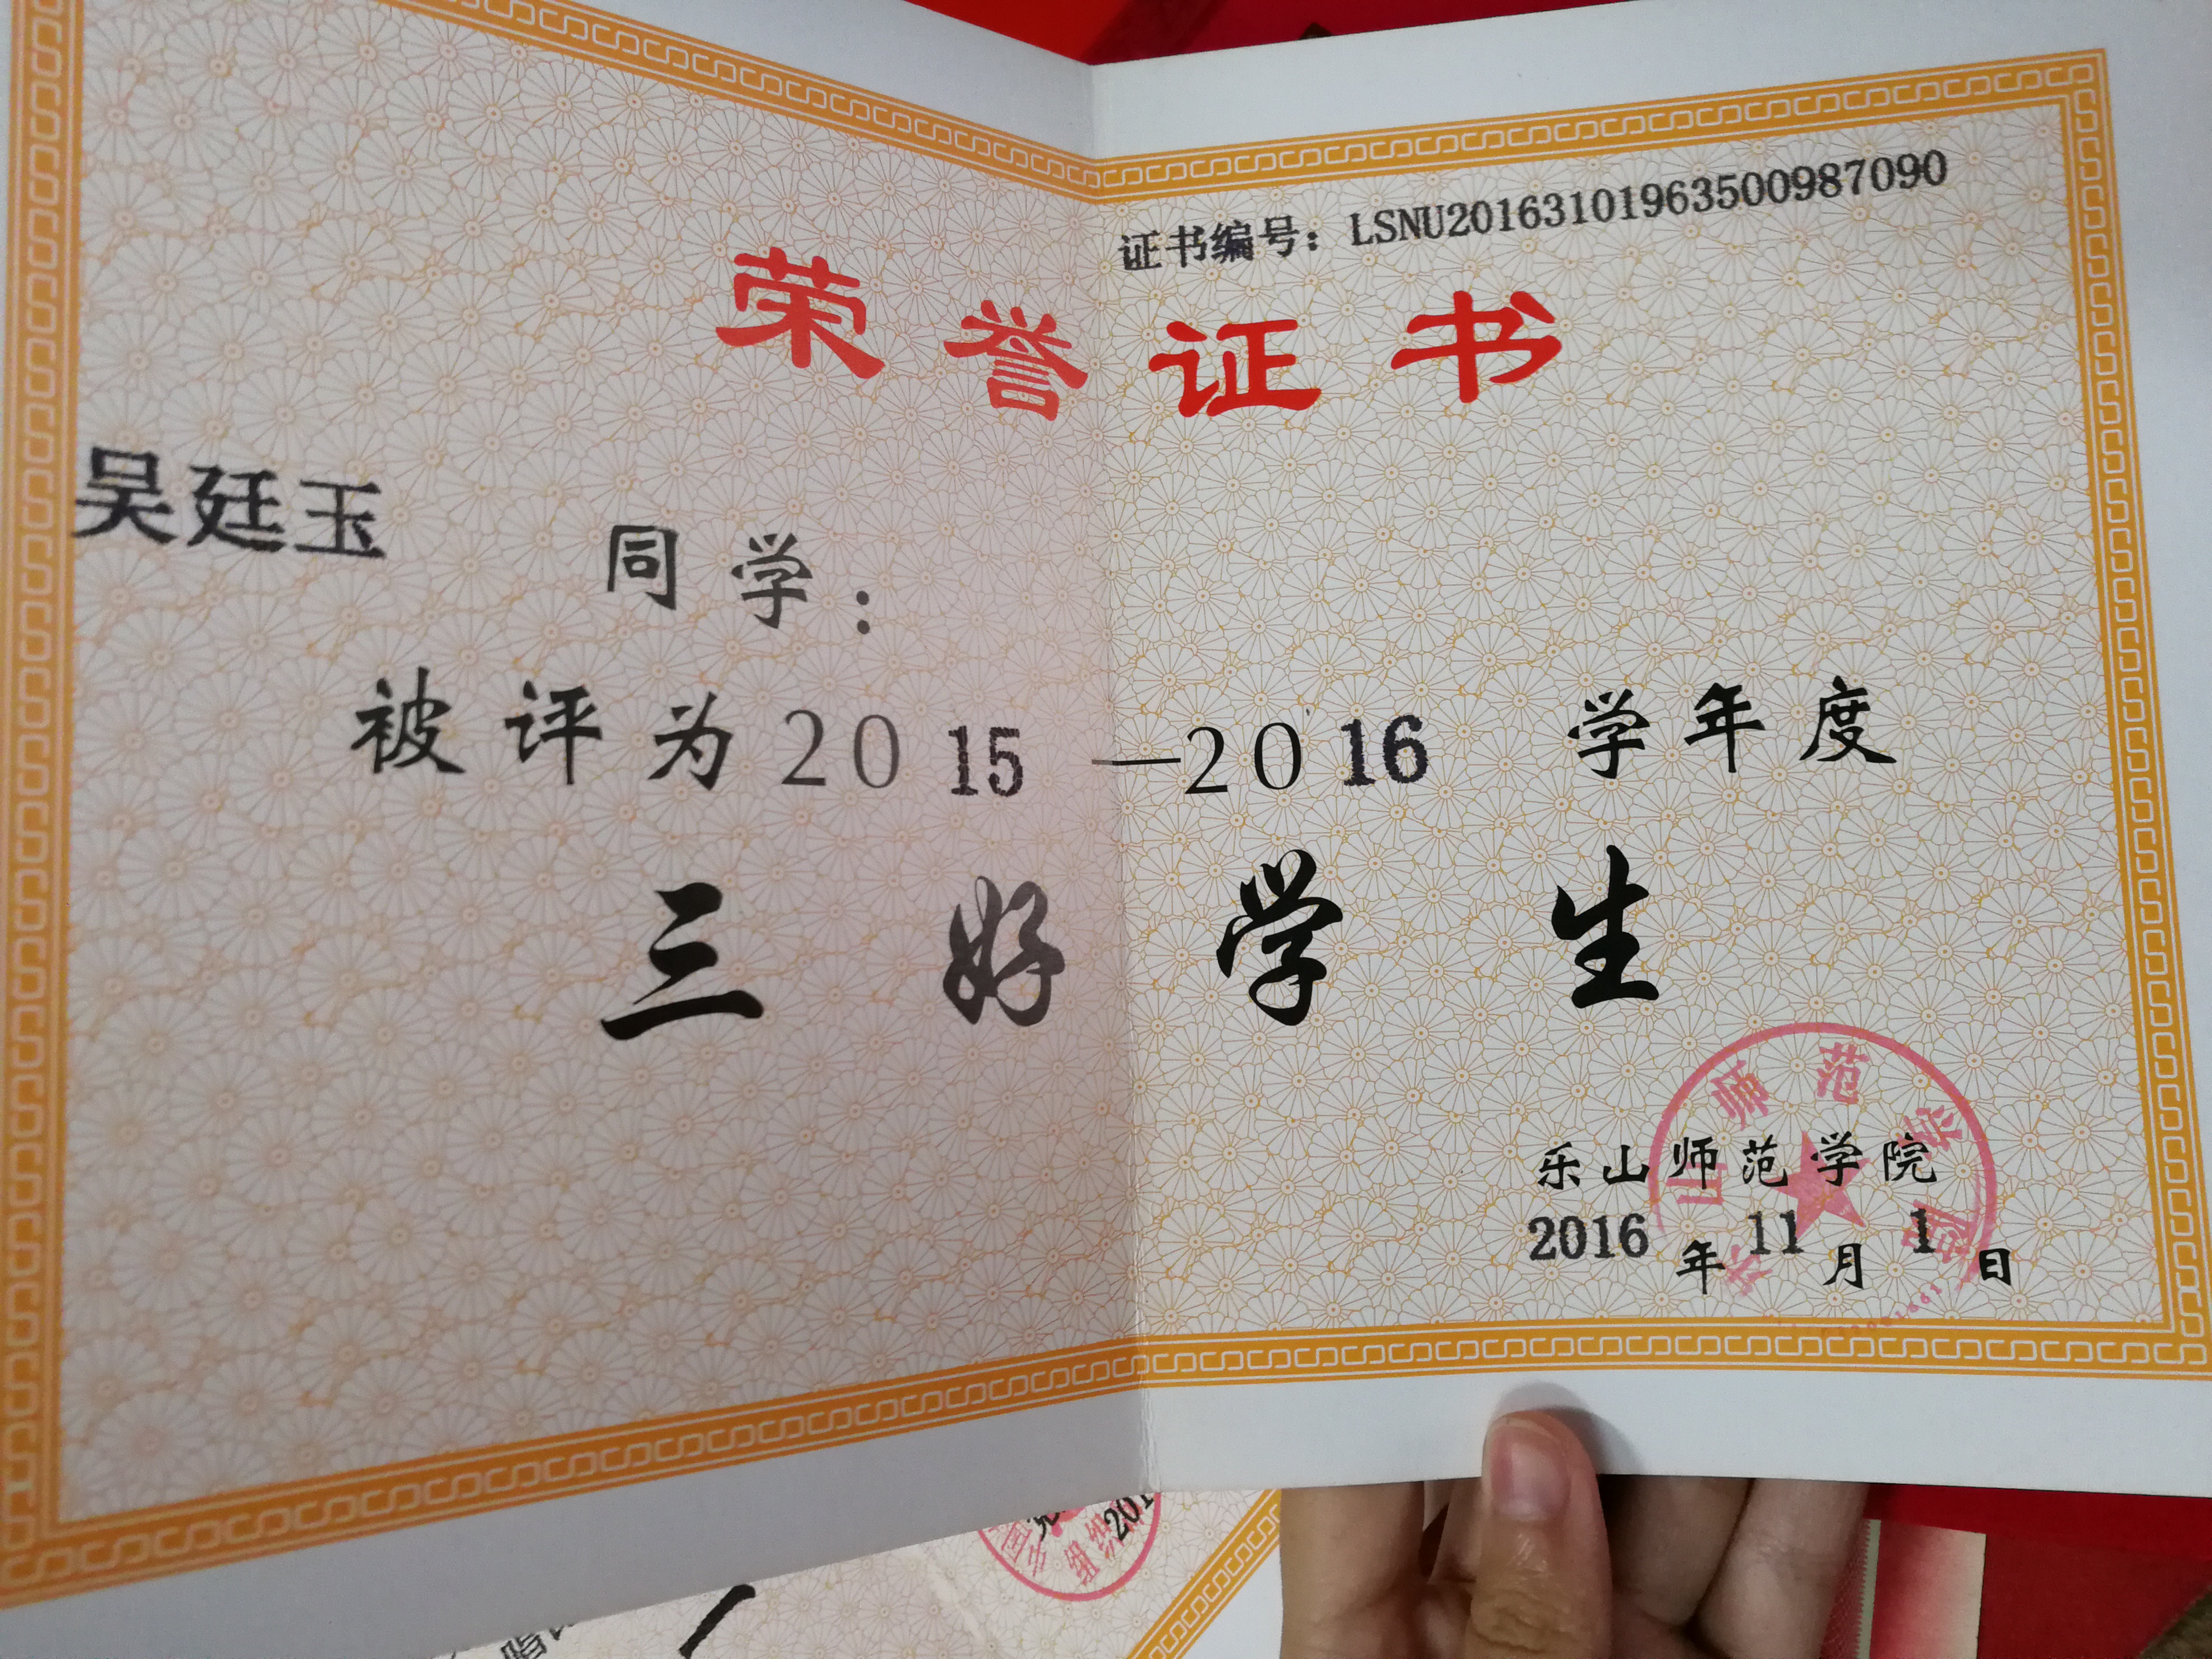 证书编号：LSNU20163101963500987090
荣誉证书
吴廷玉 同学：
被评为2015—2016 学年度
三好学生
乐山师范学院
2016年11月1日
山师范学院
201